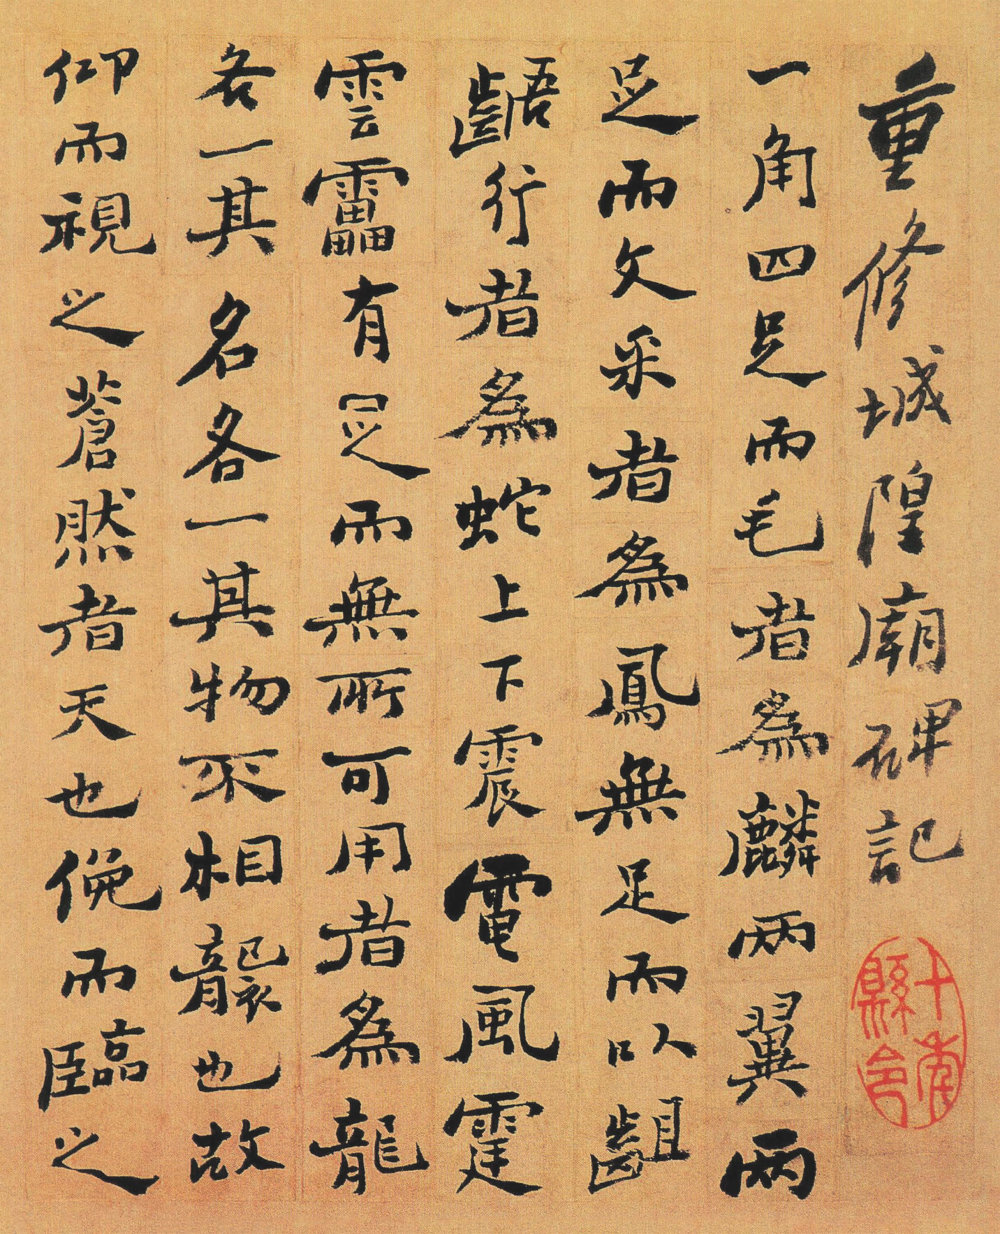 重修城隍廟碑記
十年縣令
一角四足而毛者爲麟兩翼兩
足而文采者爲鳳無足而以齟
齬行者爲蛇上下震電風霆
雲靁有足而無所可用者爲龍
各一其名各一其物不相襲也故
仰而視之蒼然者天也俛而臨之